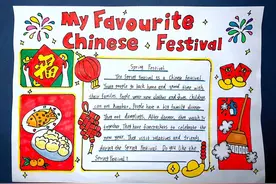 My Favourite
Chinese Festival
福
Spring Festival
The Spring Festival is a Chinese festival.
people go back home and spend time with
their families. People wear new clothes and shoes. Children
can get Have a big family dinner.
They eat dumplings. After dinner, they watch TV
together. They have firecrackers to celebrate the
new year. They visit relatives and friends
during the Spring Festival. Do you like the
Spring Festival?